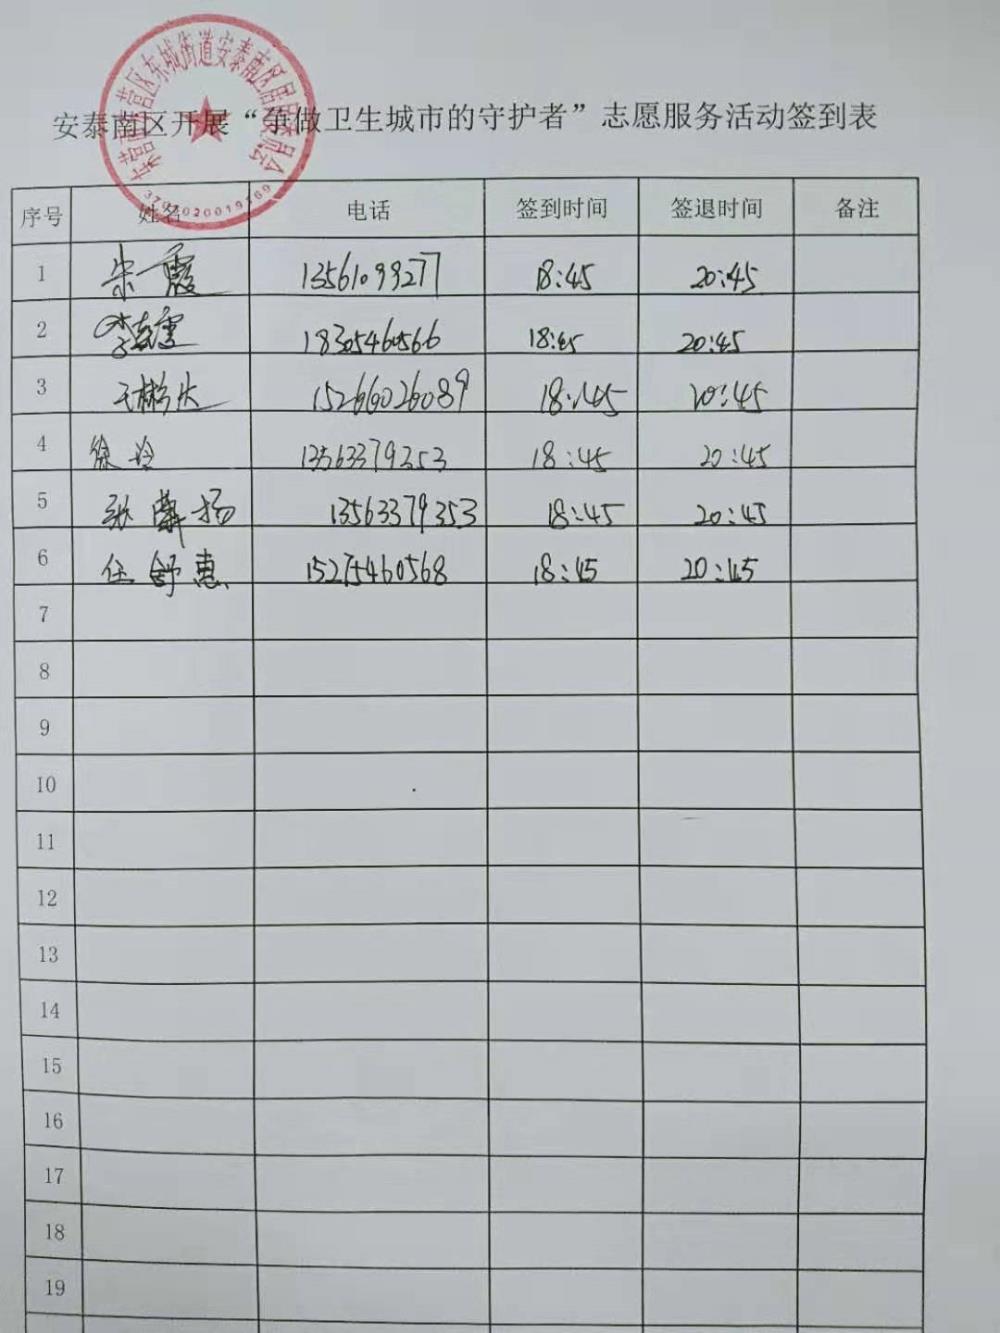 安泰南区开展“争做卫生城市的守护者”志愿服务活动签到表
序号 姓名 电话 签到时间 签退时间 备注
1 朱霞 13561099277 18:45 20:45
2 18305460566 18:45 20:45
3 王彬大 15266026089 18:45 20:45
4 徐冷 13563379353 18:45 20:45
5 张 扬 13563379353 18:45 20:45
6 任舒惠 15275460568 18:45 20:45
7
8
9
10
11
12
13
14
15
16
17
18
19